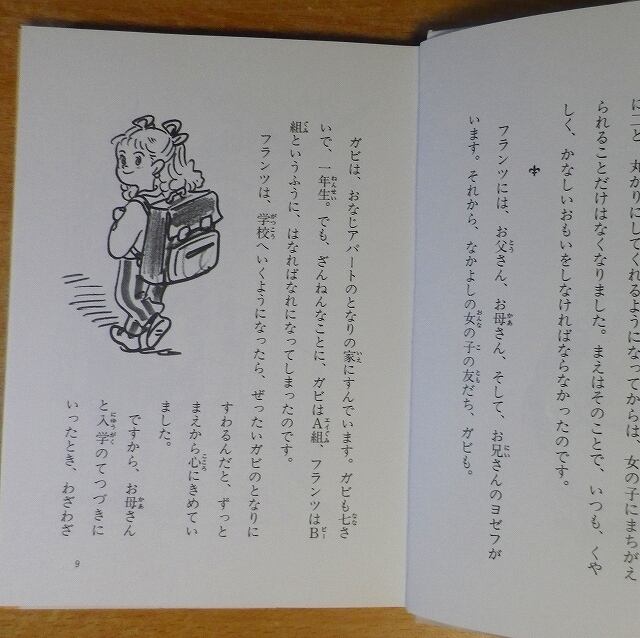 に二ど 丸がりにしてくれるようになってからは、女の子にまちがえ
られることだけはなくなりました。まえはそのことで、いつも、くや
しく、かなしいおもいをしなければならなかったのです。
フランツには、お父さん、お母さん、そして、お兄さんのヨゼフが
います。それから、なかよしの女の子の友だち、ガビも。
ガビは、おなじアパートのとなりの家にすんでいます。ガビも七さ
いで、一年生。でも、ざんねんなことに、ガビはA組、フランツはB
組というふうに、はなればなれになってしまったのです。
フランツは、学校へいくようになったら、ぜったいガビのとなりに
すわるんだと、ずっと
まえから心にきめてい
ました。
ですから、お母さん
と入学のてつづきに
いったとき、わざわざ
9